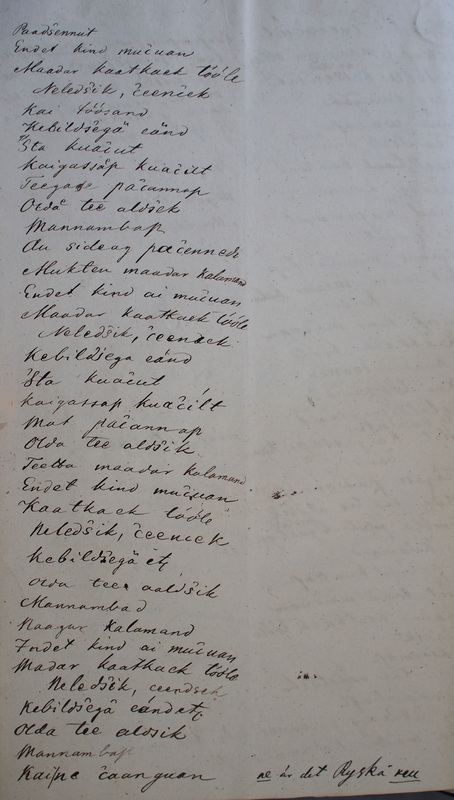 Paadšennut
Endet kind mučuan
Maadar kaatkaek tööle
Neledšik, čeenček
Kai töösand
Kebildšegä eänd
Sta kuačut
Kaigassäp kuačilt
Teegade päcannap
Olda tee aldšek
Mannambap
Au sideag pačennede
Mukten maadar kalamand
Endet kind ai mučuan
Maadar kaatkaek tööle
Neledšik, čeenek
Kebildšega eänd
Sta kuačut
Kaigassap kuačilt
Mat pačannap
Olda tee aldšik
Teetba maadar kalamand
Endet kind mučuan
Kaatkaek tööle
Neledšik, čeencek
Kebildšegä
Olda tee aaldšik
Mannambad
Naagur kalamand
Endet kind ai mučuan
Madar kaatkaek tööle
Neledšik, ceendsek
Kebildšegä eändet
Olda tee aldsik
Mannambap
Kaipe čaanguan ne är det Ryskä neu